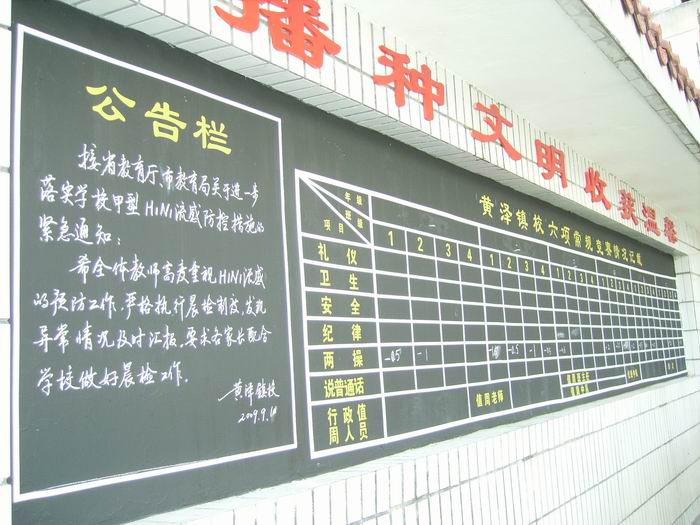 播种文明收获温馨
公告栏
接省教育厅、市教育局关于进一步
落实学校甲型H1N1流感防控措施的
紧急通知：
希全体教师高度重视H1N1流感
的预防工作，严格执行晨检制度，发现
异常情况及时汇报，要求各家长配合
学校做好晨检工作。
黄泽镇校
2009.9.1
黄泽镇校六项常规竞赛情况记载
年级
班级
项目
1 2 3 4 1 2 3 4
礼仪
卫生
安全
纪律
两操 -0.5 -1
说普通话
行政值
周人员
值周老师